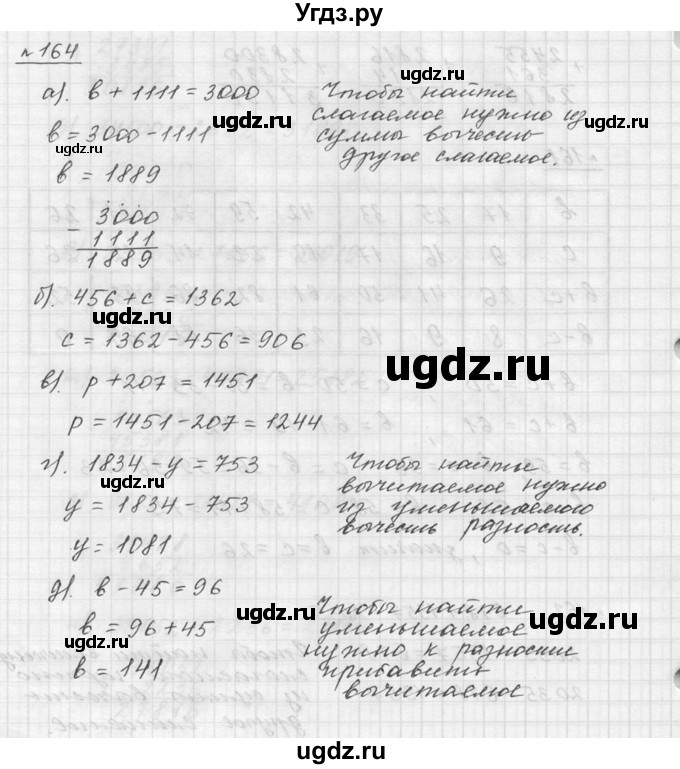 Угдз.ру
№164
а). в + 1111 = 3000 Чтобы найти
слагаемое нужно из
в = 3000 - 1111 суммы вычесть
другое слагаемое.
в = 1889
- 3000
1111
1889
б). 456 + с = 1362
с = 1362 - 456 = 906
в). р + 207 = 1451
р = 1451 - 207 = 1244
г). 1834 - у = 753 Чтобы найти
вычитаемое нужно
у = 1834 - 753 из уменьшаемого
вычесть разность.
у = 1081
д). в - 45 = 96
в = 96 + 45 Чтобы найти
уменьшаемое
нужно к разности
в = 141 прибавить
вычитаемое
ugdz.ru
ugdz.ru
ugdz.ru
ugdz.ru
ugdz.ru
ugdz.ru
ugdz.ru
ugdz.ru
ugdz.ru
ugdz.ru
ugdz.ru
ugdz.ru
ugdz.ru